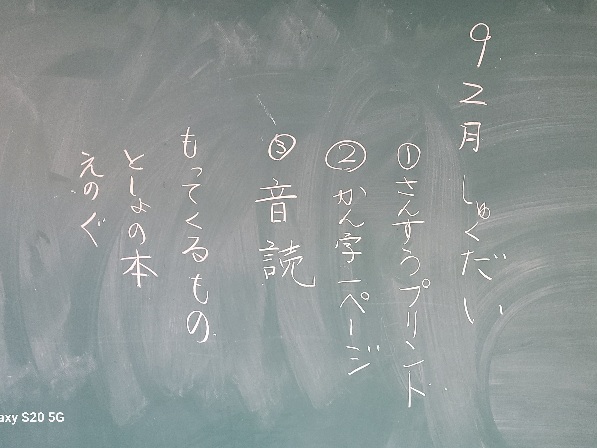 9 2月 しゅくだい
①さんすうプリント
②かん字一ページ
③音読
もってくるもの
としょの本
えのぐ
axy S20 5G